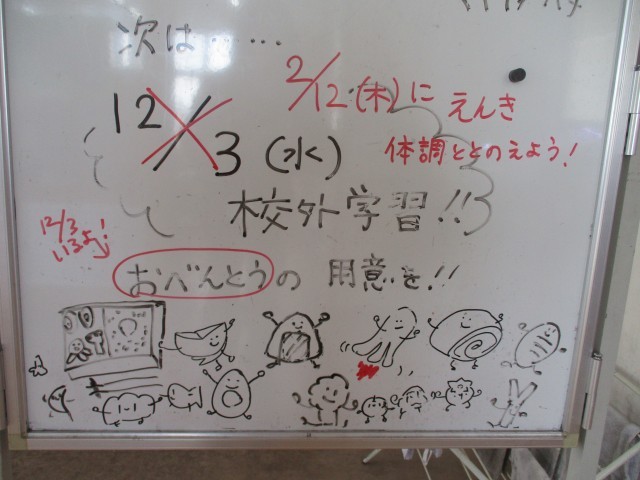 次は・・・・・
2/12(木)に えんき
12/3(水)
体調ととのえよう!
校外学習!!
12/3
いるよ!
おべんとうの 用意を!!